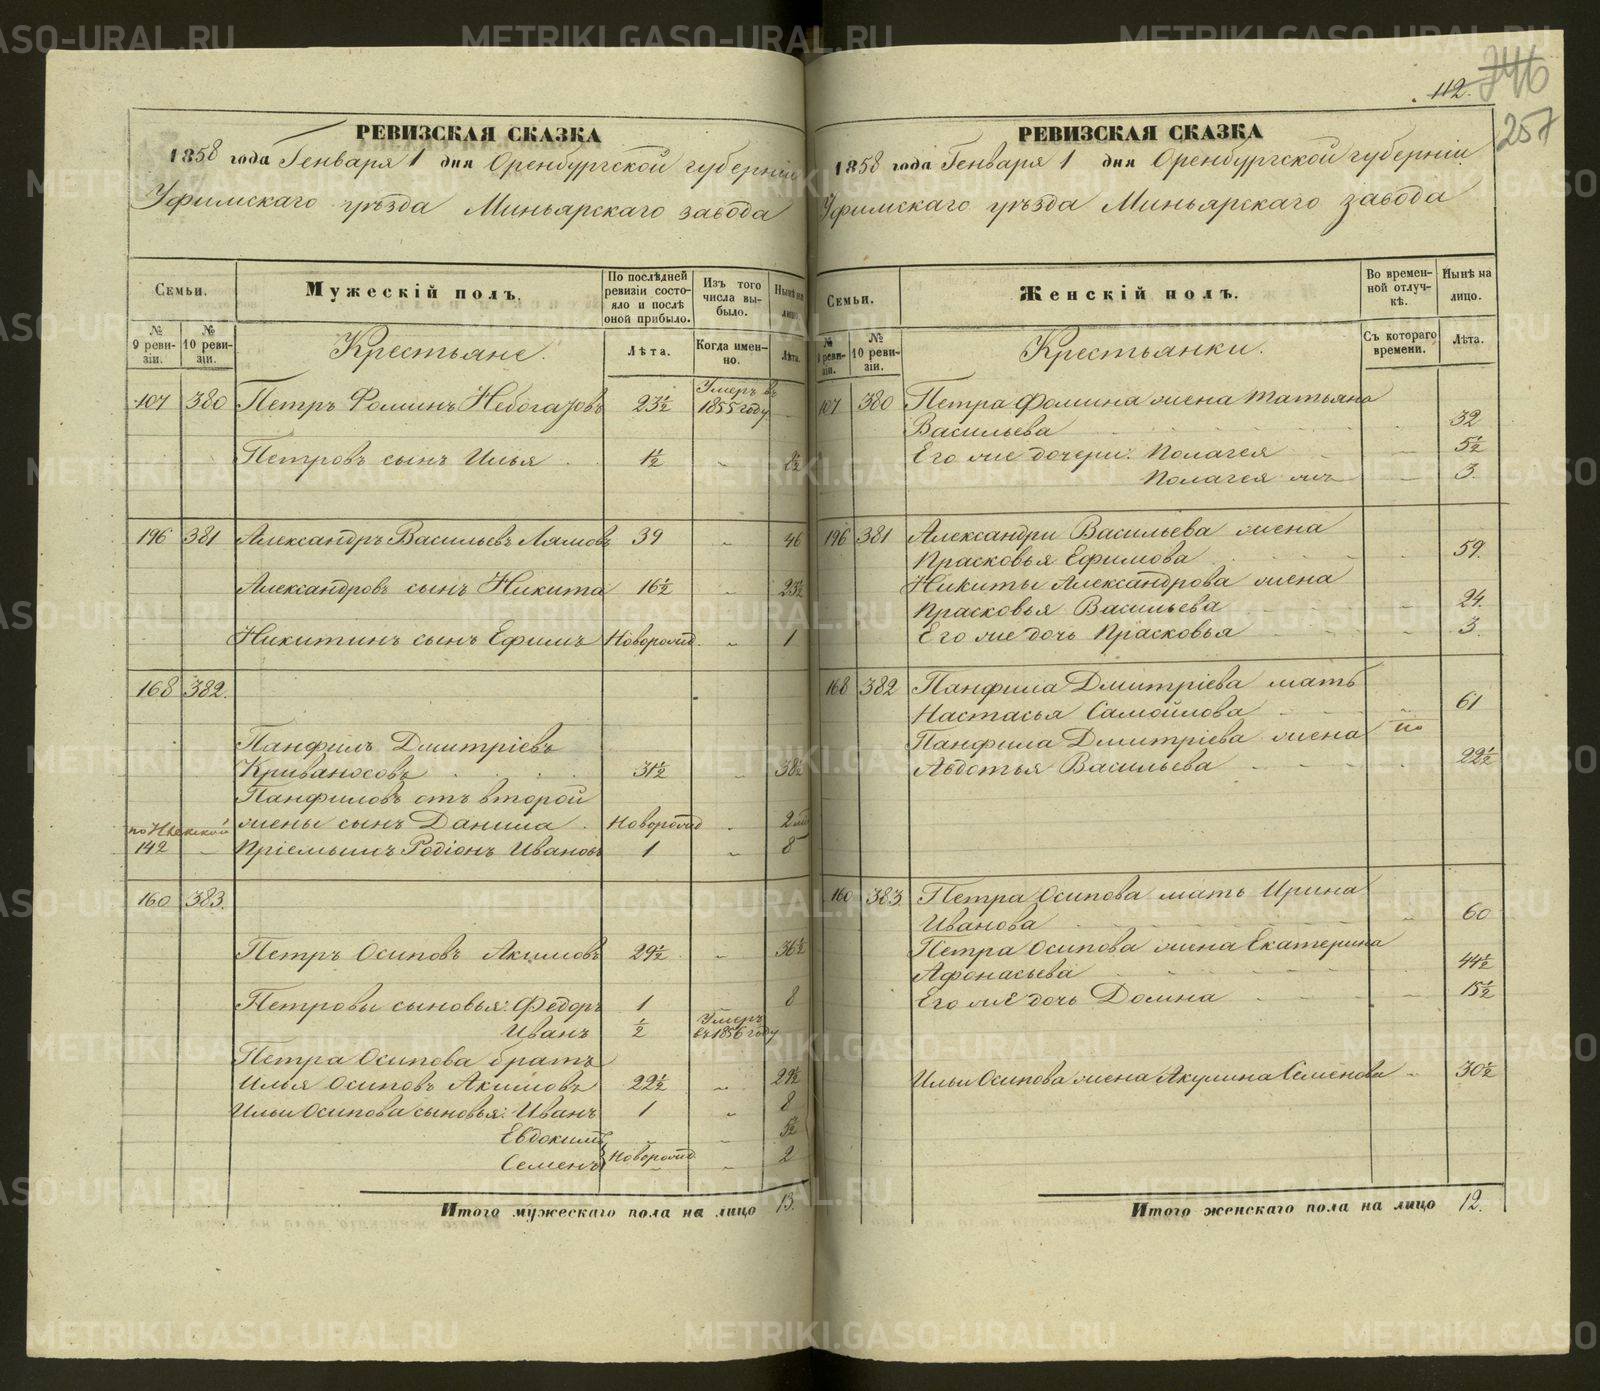 112.
246
257
РЕВИЗСКАЯ СКАЗКА
1858 года Генваря 1 дня Оренбургской губерніи
Уфимскаго уѣзда Миньярскаго завода
Семьи.
Мужескій полъ.
По послѣдней ревизіи состояло и послѣ оной прибыло.
Изъ того числа выбыло.
Нынѣ на лицо.
№ 9 ревизіи.
№ 10 ревизіи.
Крестьяне.
Лѣта.
Когда именно.
Лѣта.
107 380 Петръ Фоминъ Небогатовъ 23½ Умеръ въ 1855 году
Петровъ сынъ Илья 1½ „ 8½
196 381 Александръ Васильевъ Лямовъ 39 „ 46
Александровъ сынъ Никита 16½ „ 23½
Никитинъ сынъ Ефимъ Новорожд. „ 1
168 382.
Панфилъ Дмитріевъ
Кривоносовъ 31½ „ 38½
Панфиловъ отъ второй
жены сынъ Данила Новорожд „ 2
142 Пріемышъ Родіонъ Ивановъ 1 „ 8
160 383.
Петръ Осиповъ Акимовъ 29½ „ 36½
Петровы сыновья: Федоръ 1 8
Иванъ ½ Умеръ въ 1856 году
Петра Осипова братъ
Илья Осиповъ Акимовъ 22½ „ 29½
Ильи Осипова сыновья: Иванъ 1 „ 8
Евдокимъ „ 5½
Семенъ Новорожд „ 2
Итого мужескаго пола на лицо 13.
РЕВИЗСКАЯ СКАЗКА
1858 года Генваря 1 дня Оренбургской губерніи
Уфимскаго уѣзда Миньярскаго завода
Семьи.
Женскій полъ.
Во временной отлучкѣ.
Нынѣ на лицо.
№ 9 ревизіи.
№ 10 ревизіи.
Крестьянки.
Съ котораго времени.
Лѣта.
107 380 Петра Фомина жена Татьяна
Васильева 32
Его же дочери: Полагея 5½
Полагея жъ 3.
196 381 Александра Васильева жена
Прасковья Ефимова 59.
Никиты Александрова жена
Прасковья Васильева 24.
Его же дочь Прасковья 3.
168 382 Панфила Дмитріева мать
Настасья Самойлова 61
Панфила Дмитріева жена
Авдотья Васильева 22½
160 383. Петра Осипова мать Ирина
Иванова „ 60
Петра Осипова жена Екатерина
Афонасьева 44½
Его же дочь Домна 15½
Ильи Осипова жена Акулина Семенова „ 30½
Итого женскаго пола на лицо 12.
METRIKI.GASO-URAL.RU